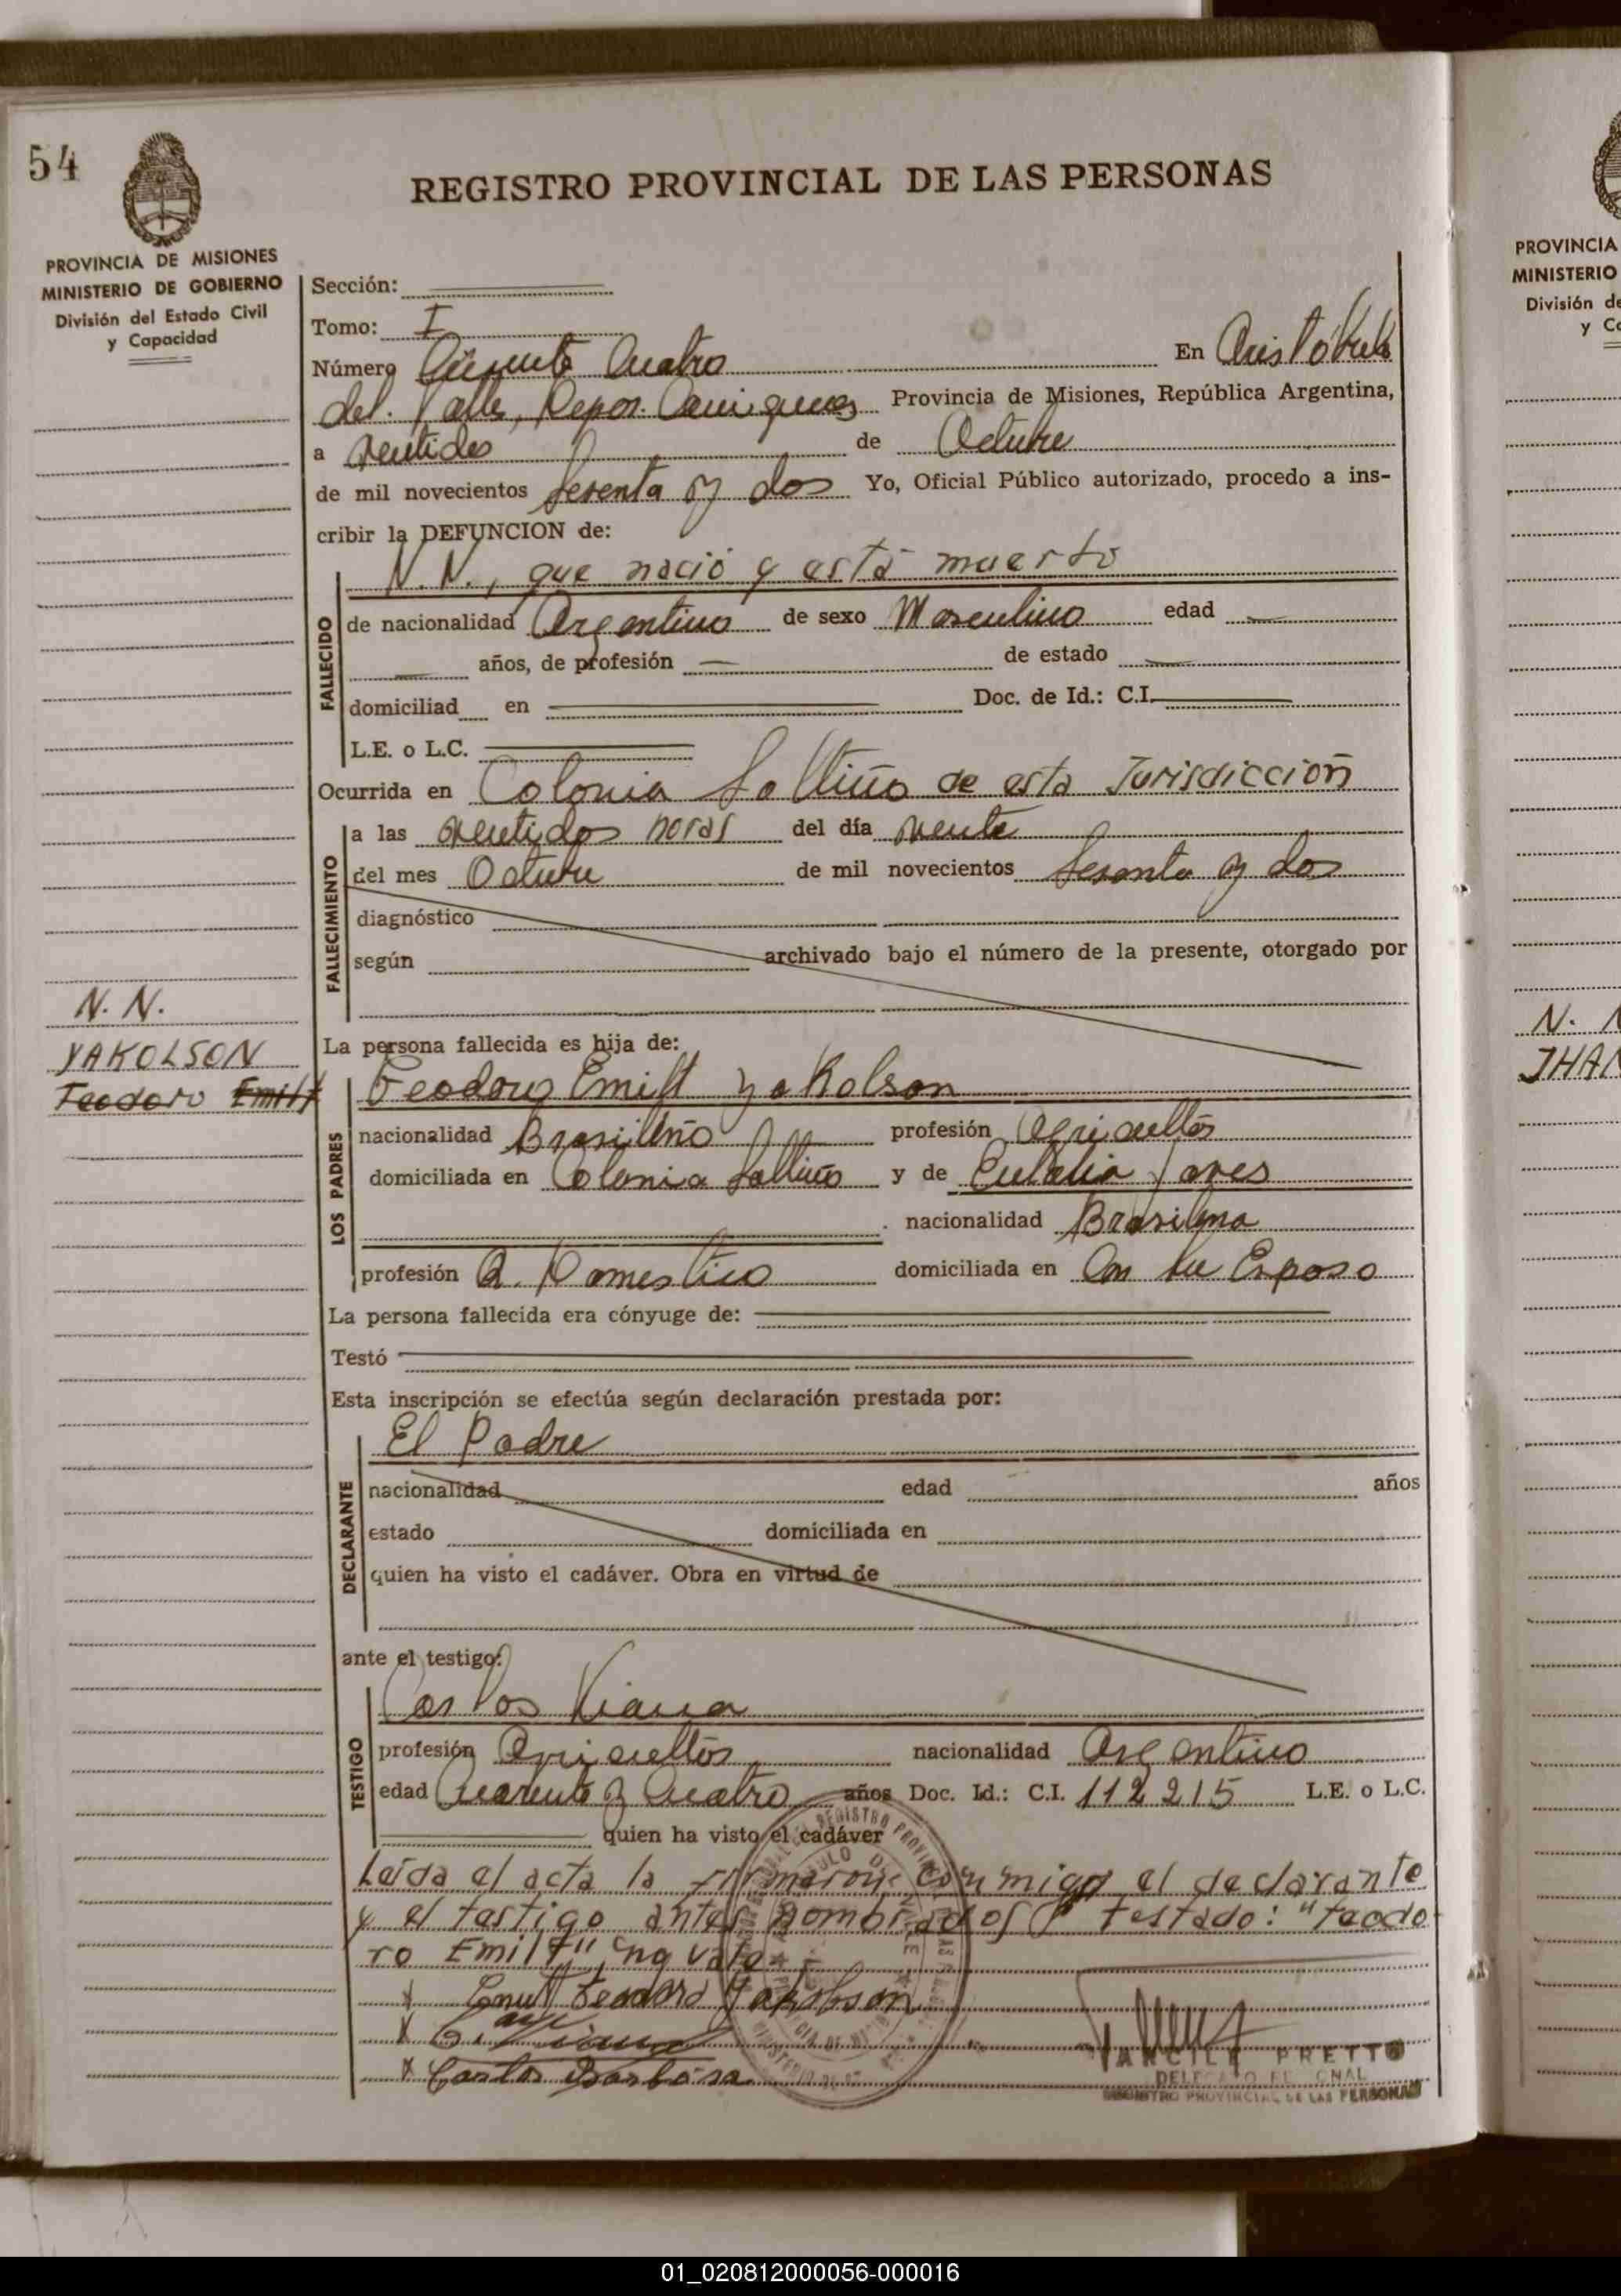 54
REGISTRO PROVINCIAL DE LAS PERSONAS
PROVINCIA DE MISIONES
MINISTERIO DE GOBIERNO
División del Estado Civil
y Capacidad
Sección:
Tomo: I
Número Cuatro En Aristóbulo
del Valle, Provincia de Misiones, República Argentina,
a de Octubre
de mil novecientos sesenta y dos Yo, Oficial Público autorizado, procedo a ins-
cribir la DEFUNCION de:
N.N., que nació y está muerto
FALLECIDO
de nacionalidad Argentino de sexo Masculino edad
años, de profesión de estado
domiciliad en Doc. de Id.: C.I.
L.E. o L.C.
Ocurrida en Colonia de esta Jurisdicción
FALLECIMIENTO
a las horas del día
del mes Octubre de mil novecientos Sesenta y dos
diagnóstico
según archivado bajo el número de la presente, otorgado por
N. N.
YAKOLSON
Teodoro
La persona fallecida es hija de:
LOS PADRES
Teodoro Emilt Yakolson
nacionalidad profesión
domiciliada en Colonia y de Eulalia
nacionalidad
profesión Q. Domestico domiciliada en Con su Esposo
La persona fallecida era cónyuge de:
Testó
Esta inscripción se efectúa según declaración prestada por:
El Padre
DECLARANTE
nacionalidad edad años
estado domiciliada en
quien ha visto el cadáver. Obra en virtud de
ante el testigo:
TESTIGO
Carlos Viana
profesión nacionalidad Argentino
edad Cuarenta y Cuatro años Doc. Id.: C.I. 112215 L.E. o L.C.
quien ha visto el cadáver
Leída el acta la firmaron conmigo el declarante
y el testigo antes nombrados testado: "teodo-
ro Emilt" no vale
Teodoro Jakobson
Carlos Barbosa
PRETTO
REGISTRO PROVINCIAL DE LAS PERSONAS
PROVINCIA
MINISTERIO
División de
N.
JHAN
01_020812000056-000016